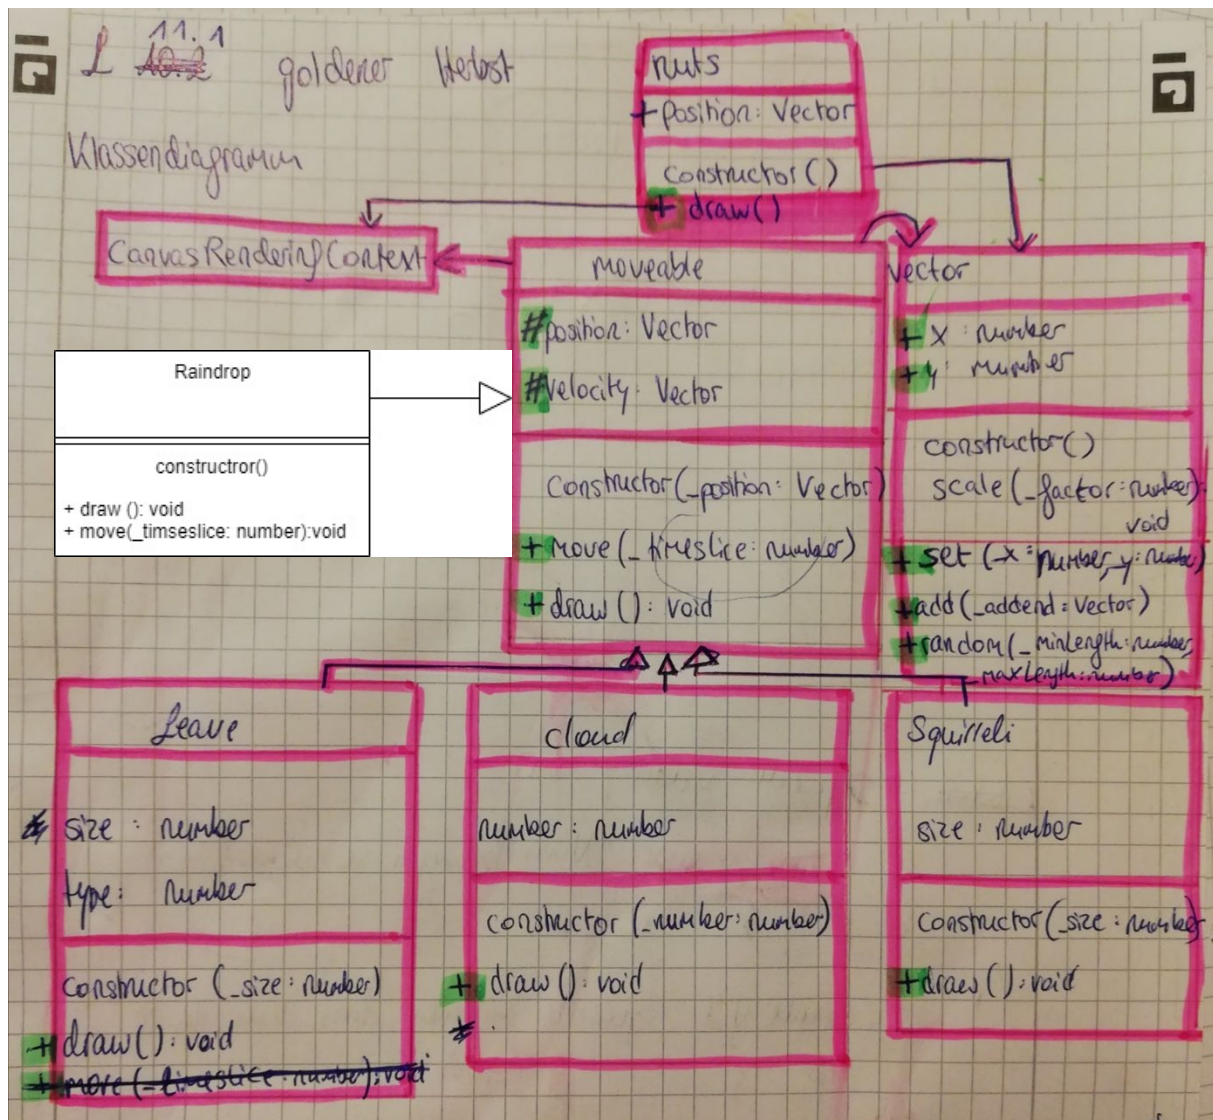 L 10.2 11.1 goldener Herbst
Klassendiagramm
nuts
+position: Vector
constructor()
+ draw()
CanvasRenderingContext
moveable
#position: Vector
#velocity: Vector
constructor(_position: Vector)
+ move (_timeslice: number)
+ draw (): void
vector
+ x : number
+ y : number
constructor()
scale (_factor: number):
void
+ set (_x: number, _y: number)
+add (_addend: Vector)
+random (_minLength: number,
_maxLength: number)
Raindrop
constructror()
+ draw (): void
+ move(_timseslice: number):void
Leave
* size : number
type: number
constructor (_size: number)
+ draw(): void
+ move (_timeslice: number): void
cloud
number: number
constructor (_number: number)
+ draw (): void
*
Squirreli
size : number
constructor (_size : number)
+draw (): void